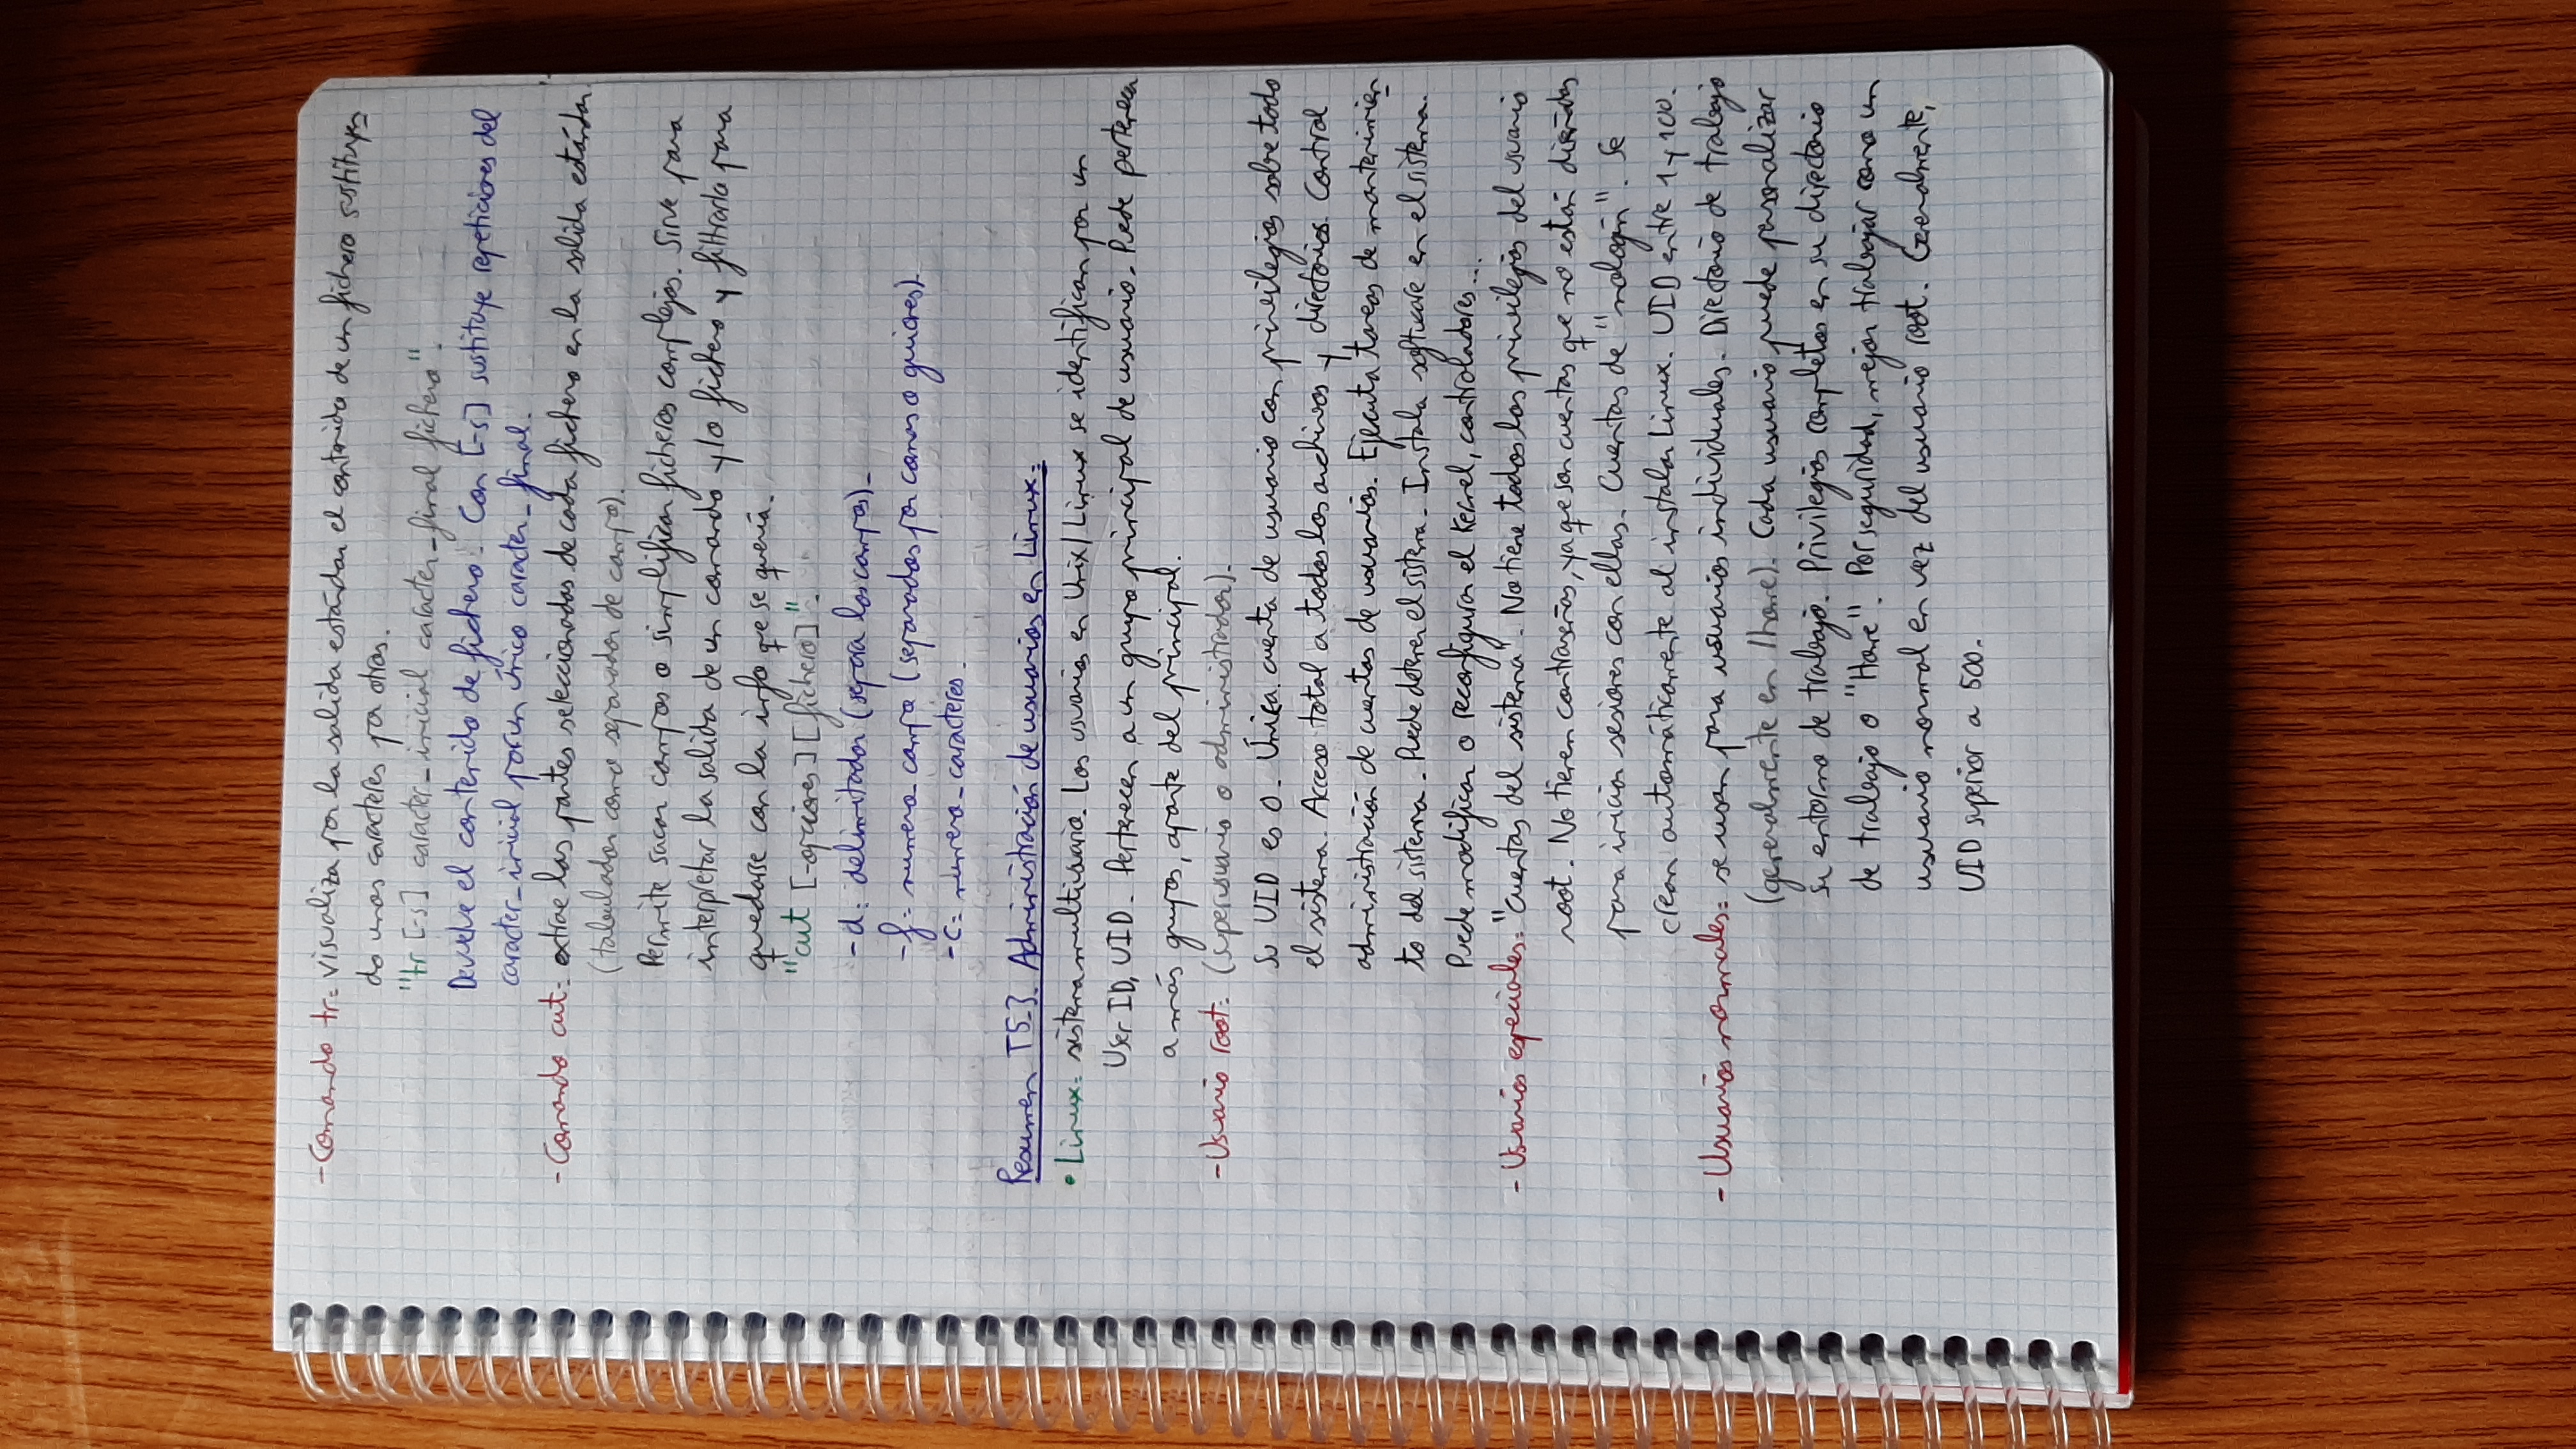 - Comando tr: visualiza por la salida estándar el contenido de un fichero sustituyen
do unos caracteres por otros.
"tr [-s] caracter_inicial caracter_final fichero".
Devuelve el contenido de fichero. Con [-s] sustituye repeticiones del
caracter_inicial por un único caracter_final.
- Comando cut: extrae las partes seleccionadas de cada fichero en la salida estándar.
(tabulador como separador de campo).
Permite sacar campos o simplificar ficheros complejos. Sirve para
interpretar la salida de un comando y/o fichero y filtrarla para
quedarse con la info que se quería.
"cut [-opciones] [fichero]".
-d: delimitador (separa los campos).
-f: numero_campo (separados por comas o guiones).
-c: numero_caracteres.
Resumen T5.3. Administración de usuarios en Linux:
• Linux: sistema multiusuario. Los usuarios en Unix/Linux se identifican por un
User ID, UID. Pertenecen a un grupo principal de usuario. Puede pertenecer
a más grupos, aparte del principal.
- Usuario root: (superusuario o administrador).
Su UID es 0. Única cuenta de usuario con privilegios sobre todo
el sistema. Acceso total a todos los archivos y directorios. Control
administración de cuentas de usuarios. Ejecuta tareas de mantenimien
to del sistema. Puede detener el sistema. Instala software en el sistema.
Puede modificar o reconfigurar el Kernel, controladores...
- Usuarios especiales: "Cuentas del sistema". No tiene todos los privilegios del usuario
root. No tienen contraseñas, ya que son cuentas que no están diseñadas
para iniciar sesiones con ellas. Cuentas de "nologin". Se
crean automáticamente al instalar Linux. UID entre 1 y 100.
- Usuarios normales: se usan para usuarios individuales. Directorio de trabajo
(generalmente en /home). Cada usuario puede personalizar
su entorno de trabajo. Privilegios completos en su directorio
de trabajo o "Home". Por seguridad, mejor trabajar como un
usuario normal en vez del usuario root. Generalmente,
UID superior a 500.